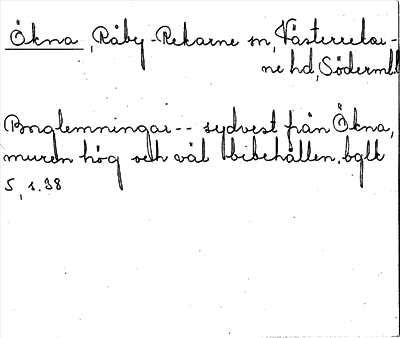 Ökna, Råby-Rekarne sn, Västerrekar-
ne hd, Söderml.
Borglemningar -- sydvest från Ökna,
muren hög och väl bibehållen. bglk
5, s. 38